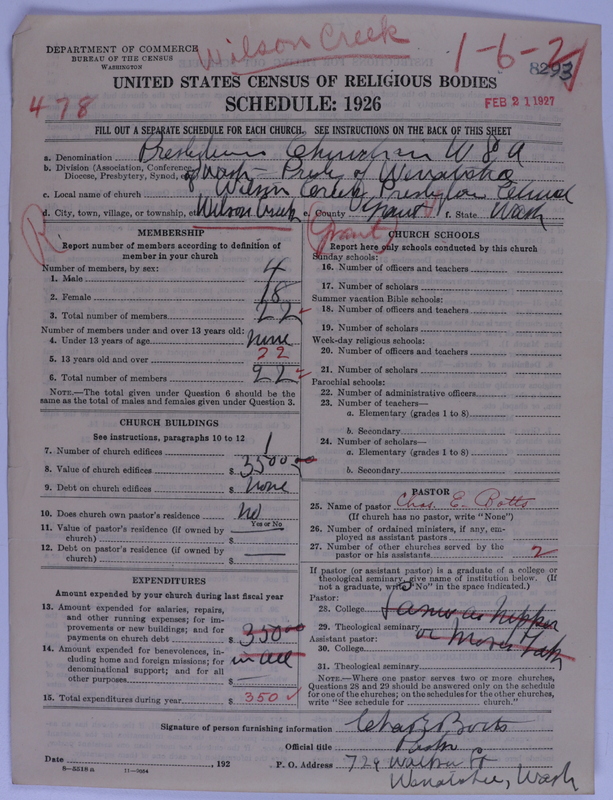 Wilson Creek
1-6-27
8293
DEPARTMENT OF COMMERCE
BUREAU OF THE CENSUS
WASHINGTON
UNITED STATES CENSUS OF RELIGIOUS BODIES
SCHEDULE: 1926
478
FEB 21 1927
FILL OUT A SEPARATE SCHEDULE FOR EACH CHURCH. SEE INSTRUCTIONS ON THE BACK OF THIS SHEET
a. Denomination Presbyterian Church in U S A
b. Division (Association, Conference,
Diocese, Presbytery, Synod, of Wash - Presby of Wenatchee
c. Local name of church Wilson Creek Presbyterian Church
d. City, town, village, or township, etc. Wilson Creek e. County Grant f. State Wash
R
Grant
MEMBERSHIP
Report number of members according to definition of
member in your church
Number of members, by sex:
1. Male 4
2. Female 18
3. Total number of members 22
Number of members under and over 13 years old:
4. Under 13 years of age none
5. 13 years old and over 22
6. Total number of members 22
NOTE.—The total given under Question 6 should be the
same as the total of males and females given under Question 3.
CHURCH BUILDINGS
See instructions, paragraphs 10 to 12
7. Number of church edifices 1
8. Value of church edifices $ 3500 00
9. Debt on church edifices $ none
10. Does church own pastor's residence? no
Yes or No
11. Value of pastor's residence (if owned by
church) $
12. Debt on pastor's residence (if owned by
church) $
EXPENDITURES
Amount expended by your church during last fiscal year
13. Amount expended for salaries, repairs,
and other running expenses; for im-
provements or new buildings; and for
payments on church debt $ 350 00
14. Amount expended for benevolences, in-
cluding home and foreign missions; for
denominational support; and for all
other purposes $
in all
15. Total expenditures during year $ 350
CHURCH SCHOOLS
Report here only schools conducted by this church
Sunday schools:
16. Number of officers and teachers
17. Number of scholars
Summer vacation Bible schools:
18. Number of officers and teachers
19. Number of scholars
Week-day religious schools:
20. Number of officers and teachers
21. Number of scholars
Parochial schools:
22. Number of administrative officers
23. Number of teachers—
a. Elementary (grades 1 to 8)
b. Secondary
24. Number of scholars—
a. Elementary (grades 1 to 8)
b. Secondary
PASTOR
25. Name of pastor Chas. E. Botts
(If church has no pastor, write "None")
26. Number of ordained ministers, if any, em-
ployed as assistant pastors
27. Number of other churches served by the
pastor or his assistants 2
If pastor (or assistant pastor) is a graduate of a college or
theological seminary, give name of institution below. (If
not a graduate, write "No" in the space indicated.)
Pastor:
28. College Same as
29. Theological seminary or Moses Lake
Assistant pastor:
30. College
31. Theological seminary
NOTE.—Where one pastor serves two or more churches,
Questions 28 and 29 should be answered only on the schedule
for one of the churches; on the schedules for the other churches,
write "See schedule for church."
Signature of person furnishing information Chas E Botts
Official title Pastor
Date , 192 P. O. Address 729 Walker St
Wenatchee, Wash
8-5518 a 11-9064